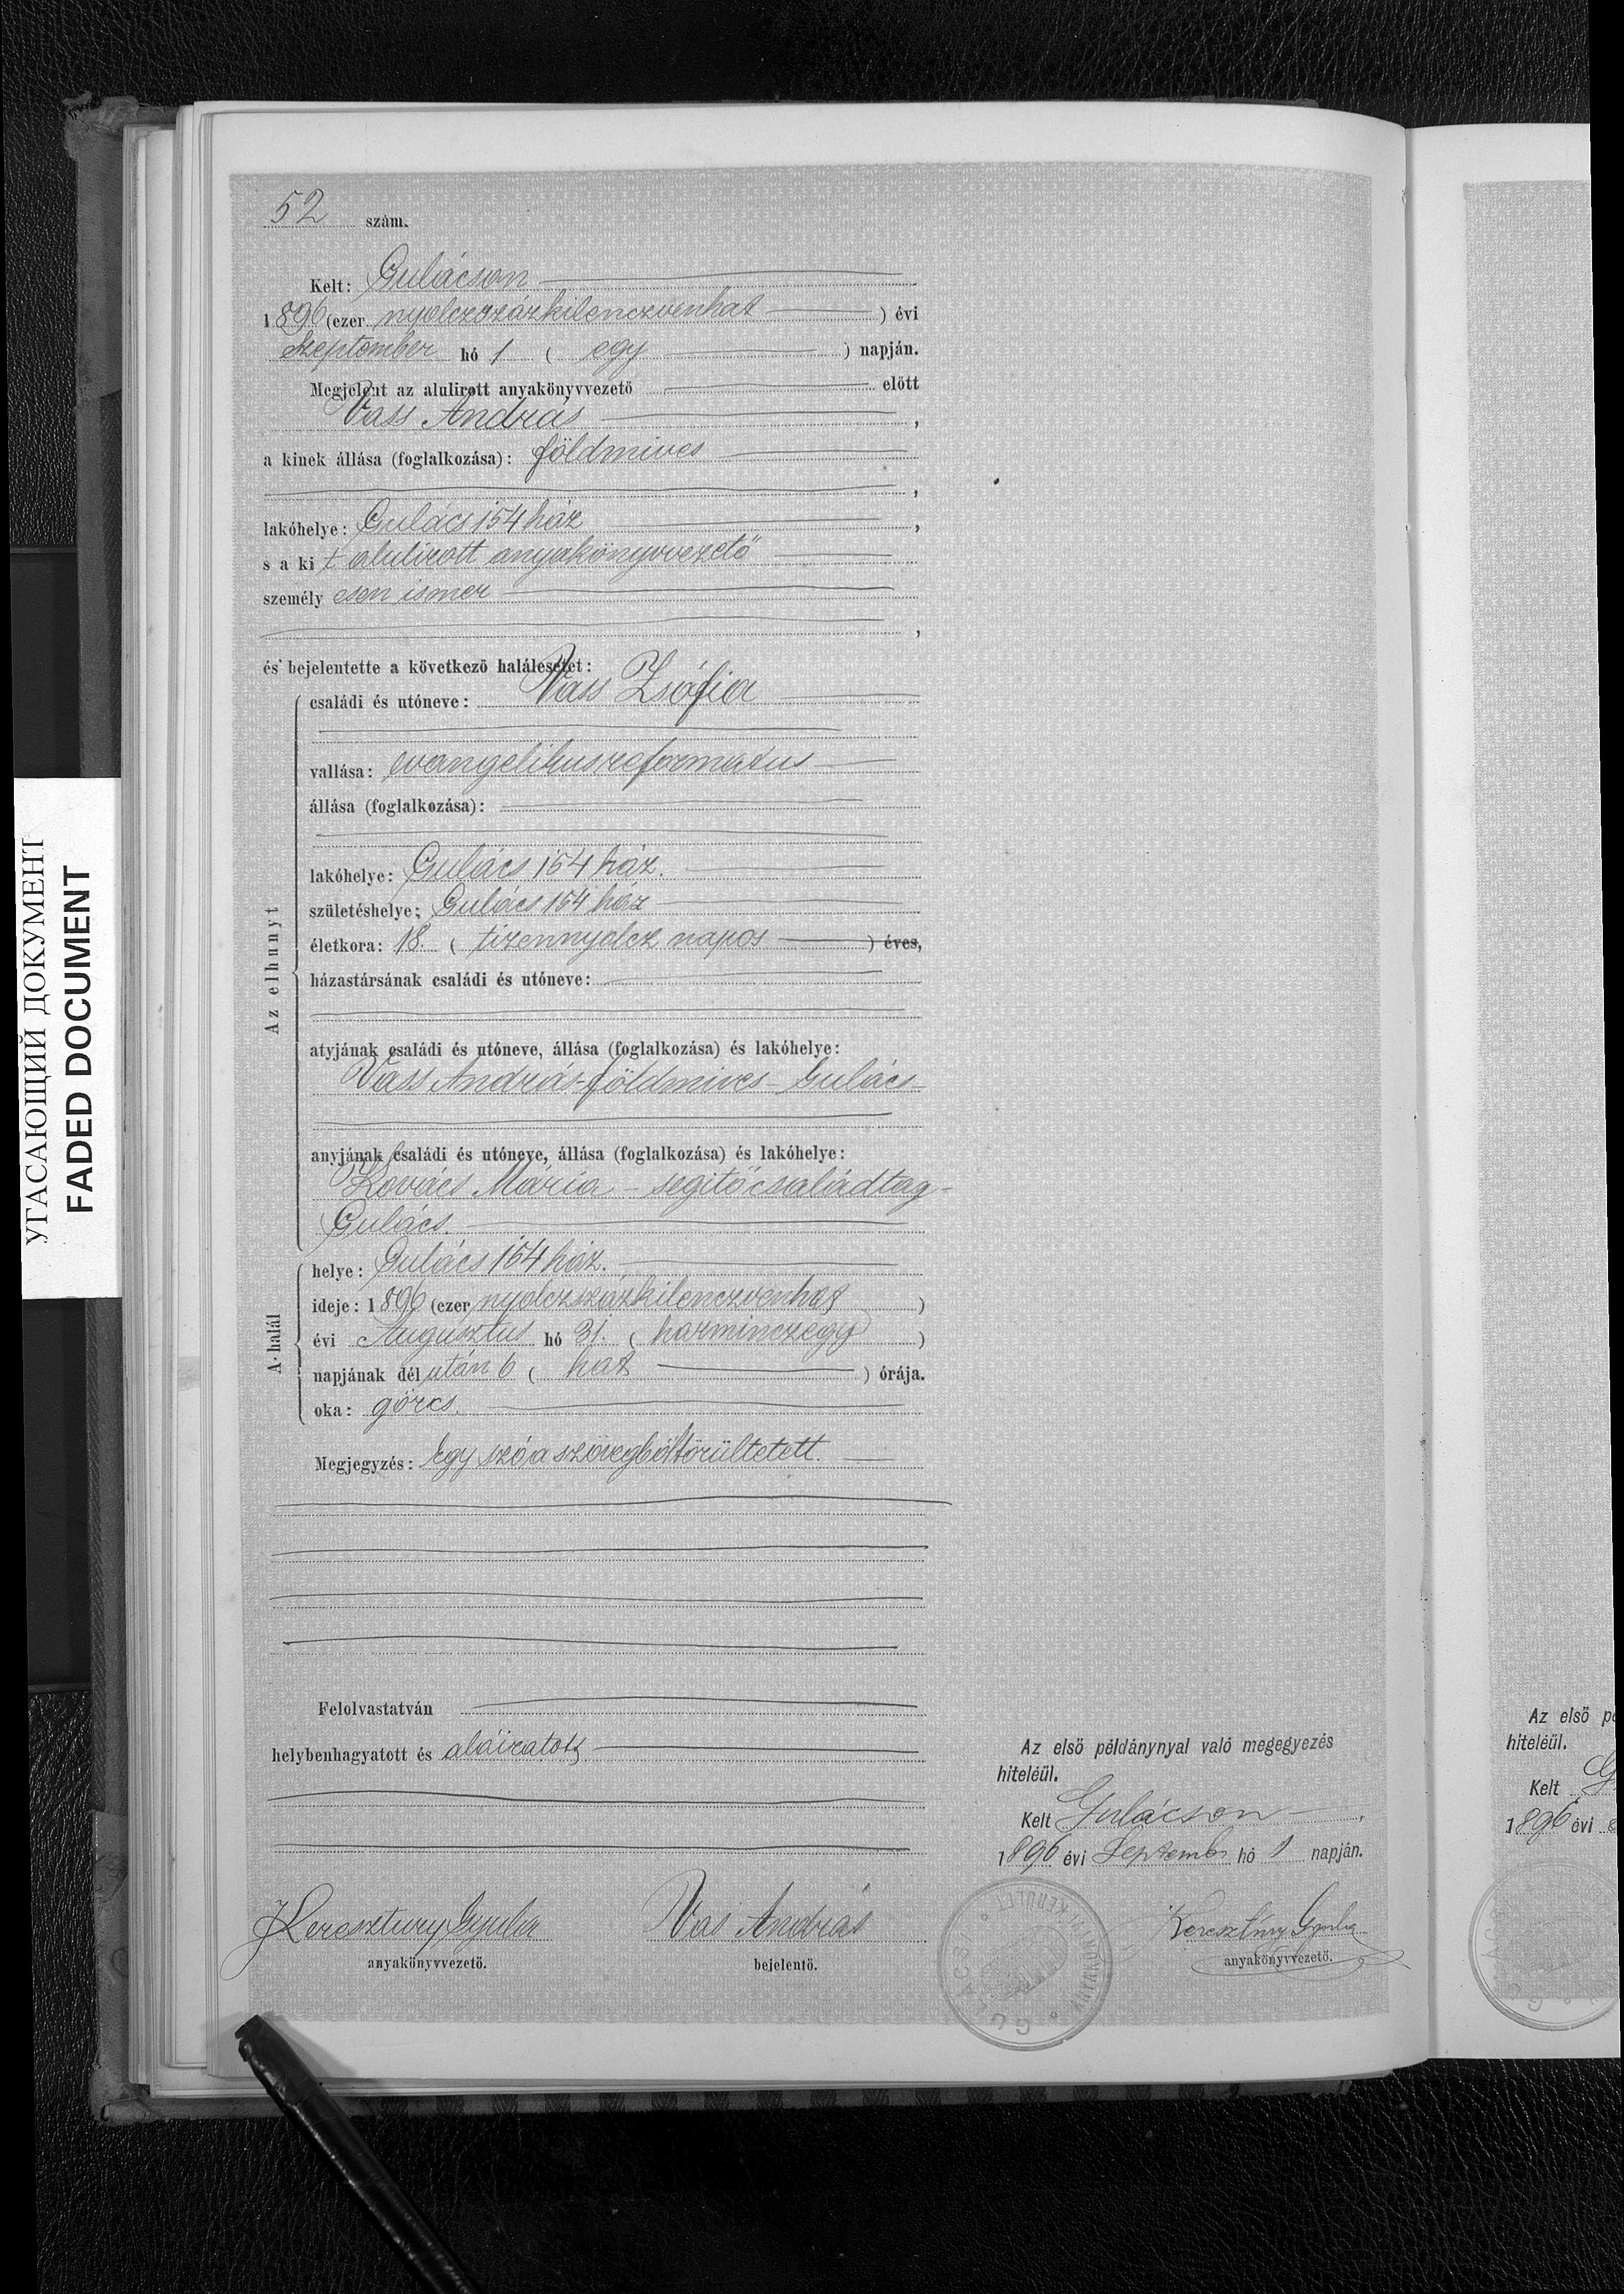 52 szám.
Kelt: Gulácson
1896 (ezer nyolczszázkilenczvenhat) évi
Szeptember hó 1 ( egy ) napján.
Megjelent az alulirott anyakönyvvezető előtt
Vass András ,
a kinek állása (foglalkozása): földmives
,
lakóhelye: Gulács 154 ház ,
s a kit alulirott anyakönyvvezető
személyesen ismer
,
és bejelentette a következő halálesetet:
Az elhunyt
családi és utóneve: Vass Zsófia
vallása: evangelikus reformatus
állása (foglalkozása):
lakóhelye: Gulács 154 ház.
születéshelye: Gulács 154 ház
életkora: 18. ( tizennyolcz napos ) éves,
házastársának családi és utóneve:
atyjának családi és utóneve, állása (foglalkozása) és lakóhelye:
Vass András - földmives - Gulács
anyjának családi és utóneve, állása (foglalkozása) és lakóhelye:
Kovács Mária - segitő családtag -
Gulács.
A halál
helye: Gulács 154 ház.
ideje: 1896 (ezer nyolczszázkilenczvenhat )
évi Augusztus hó 31. ( harminczegy )
napjának dél után 6 ( hat ) órája.
oka: görcs.
Megjegyzés: Egy szó a szövegből törültetett.
Felolvastatván
helybenhagyatott és aláiratott
Keresztury Gyula
anyakönyvvezető.
Vas András
bejelentő.
Az első példánynyal való megegyezés
hiteléül.
Kelt Gulácson ,
1896 évi Septembr hó 1 napján.
Keresztury Gyula
anyakönyvvezető.
GULÁCS
ANYAKÖNYVI KERÜLET
Az első pé
hiteléül.
Kelt G
1896 évi
УГАСАЮЩИЙ ДОКУМЕНТ
FADED DOCUMENT